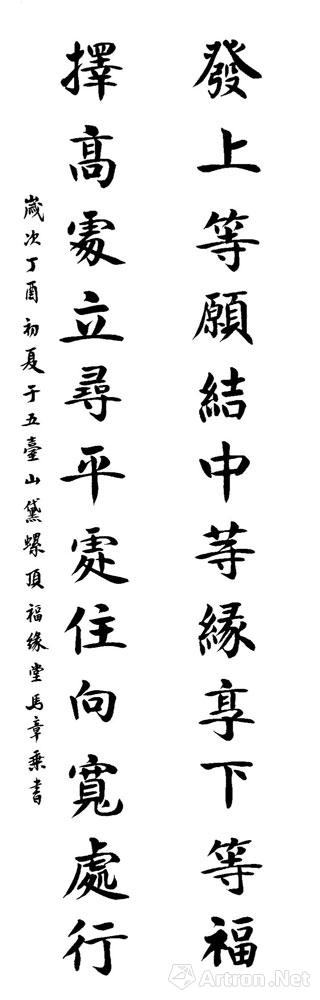 發上等願結中等緣享下等福
擇高處立尋平處住向寬處行
歲次丁酉初夏于五臺山黛螺頂福緣堂馬章乘書
Artron.Net